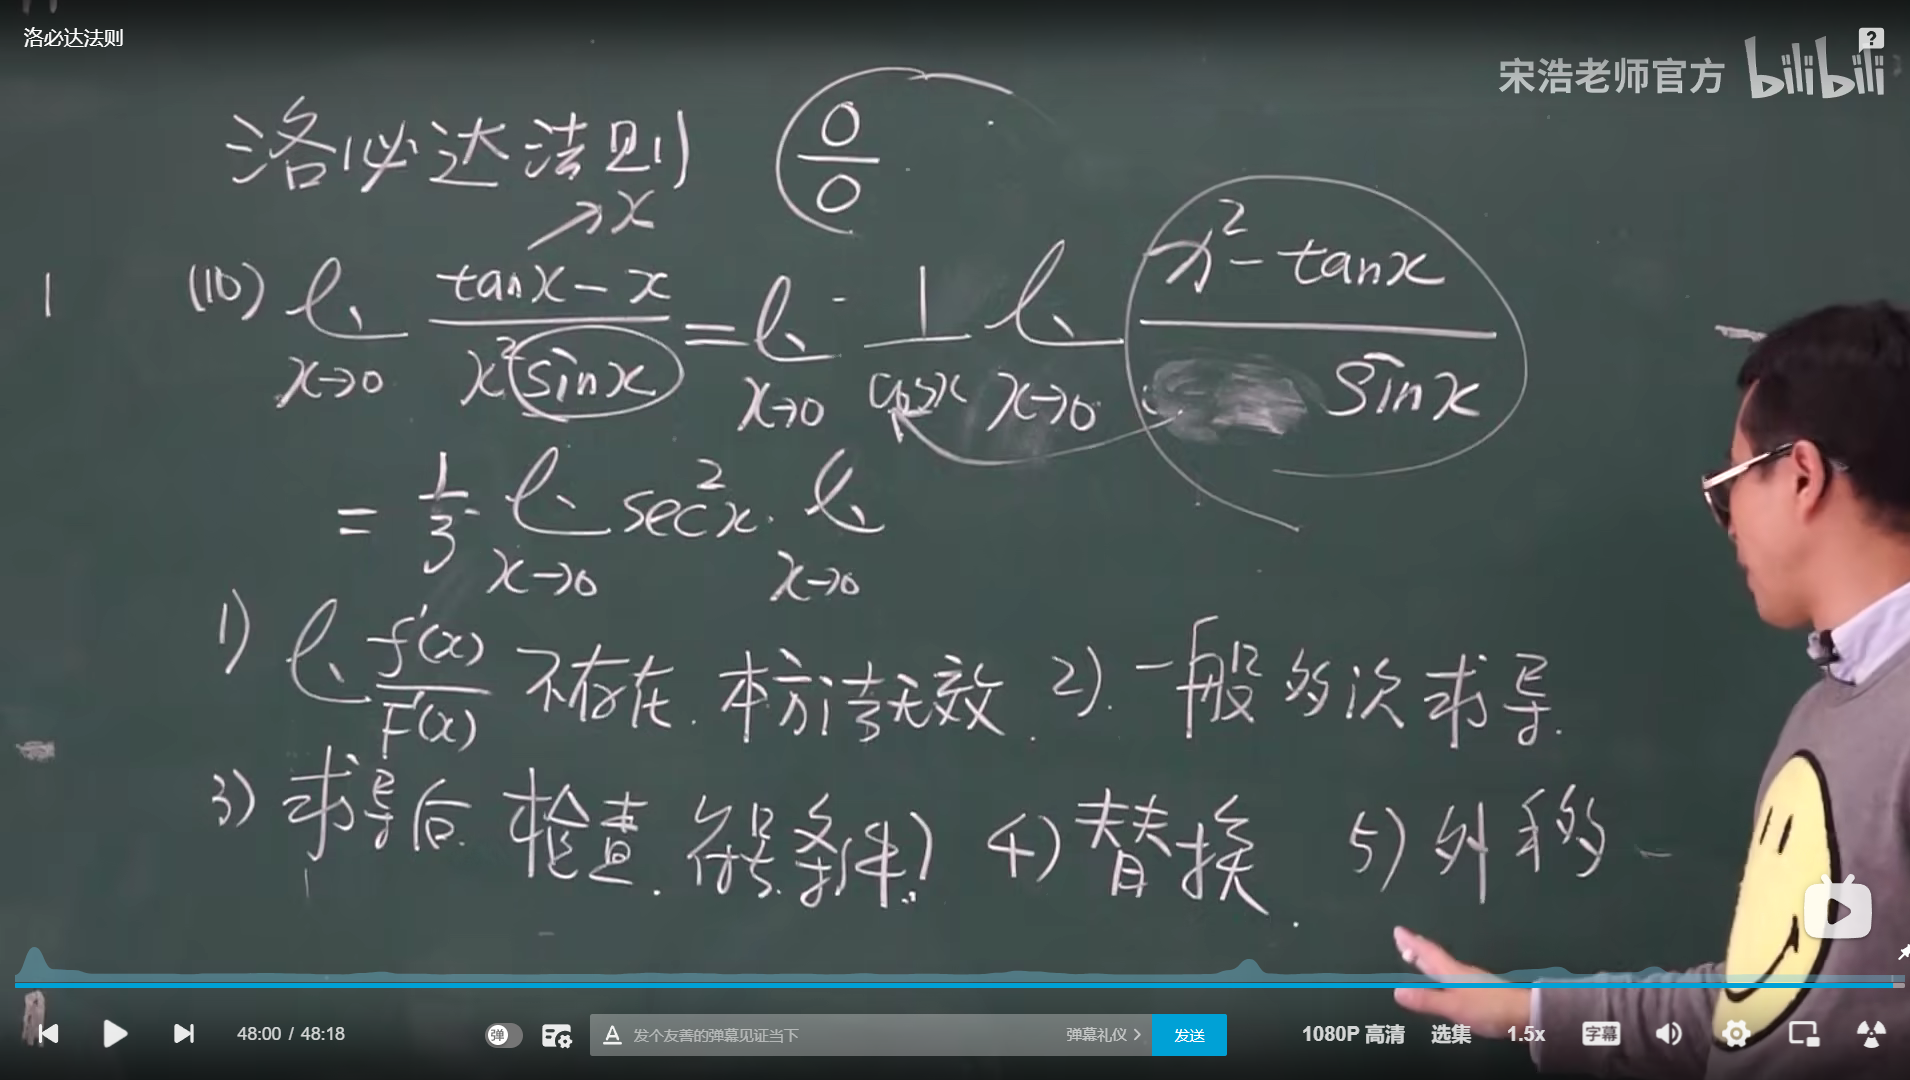 洛必达法则
宋浩老师官方 bilibili
洛必达法则 0/0
→x
1 (10) l. x→0 (tanx-x)/(x²sinx) = l. x→0 1/cosx l. x→0 (x²-tanx)/sinx
= 1/3 · l. x→0 sec²x · l. x→0
1) l. f'(x)/F'(x) 不存在. 本方法无效. 2). 一般多次求导.
3) 求导后检查. 符号条件? 4) 替换. 5) 外移
48:00 / 48:18
弹
A 发个友善的弹幕见证当下 弹幕礼仪 > 发送
1080P 高清 选集 1.5x 字幕